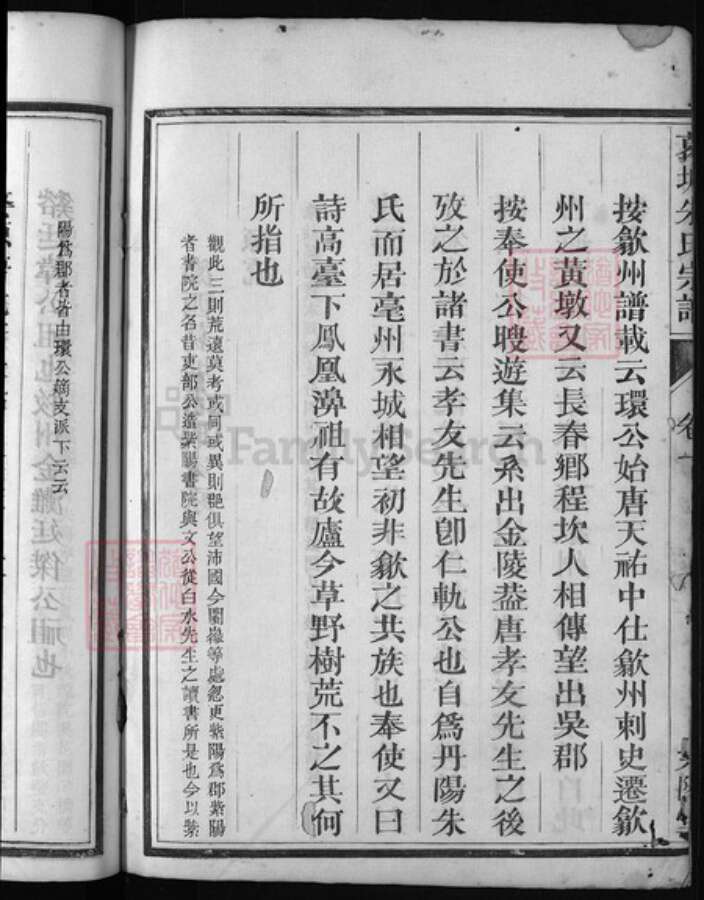 按歙州譜載云環公始唐天祐中仕歙州刺史遷歙
州之黃墩又云長春鄕程坎人相傳望出吳郡
按奉使公聘遊集云系出金陵葢唐孝友先生之後
攷之於諸書云孝友先生卽仁軌公也自爲丹陽朱
氏而居亳州永城相望初非歙之共族也奉使又曰
詩高臺下鳳凰濞祖有故廬今草野樹荒不之其何
所指也
觀此三則荒遠莫考或同或異則郡俱望沛國今閩婺等處忽更紫陽爲郡紫陽
者書院之名昔吏部公遣紫陽書院與文公從白水先生之讀書所是也今以紫
陽爲郡者皆由環公蕃支派下云云
朱氏宗譜
卷
FamilySearch